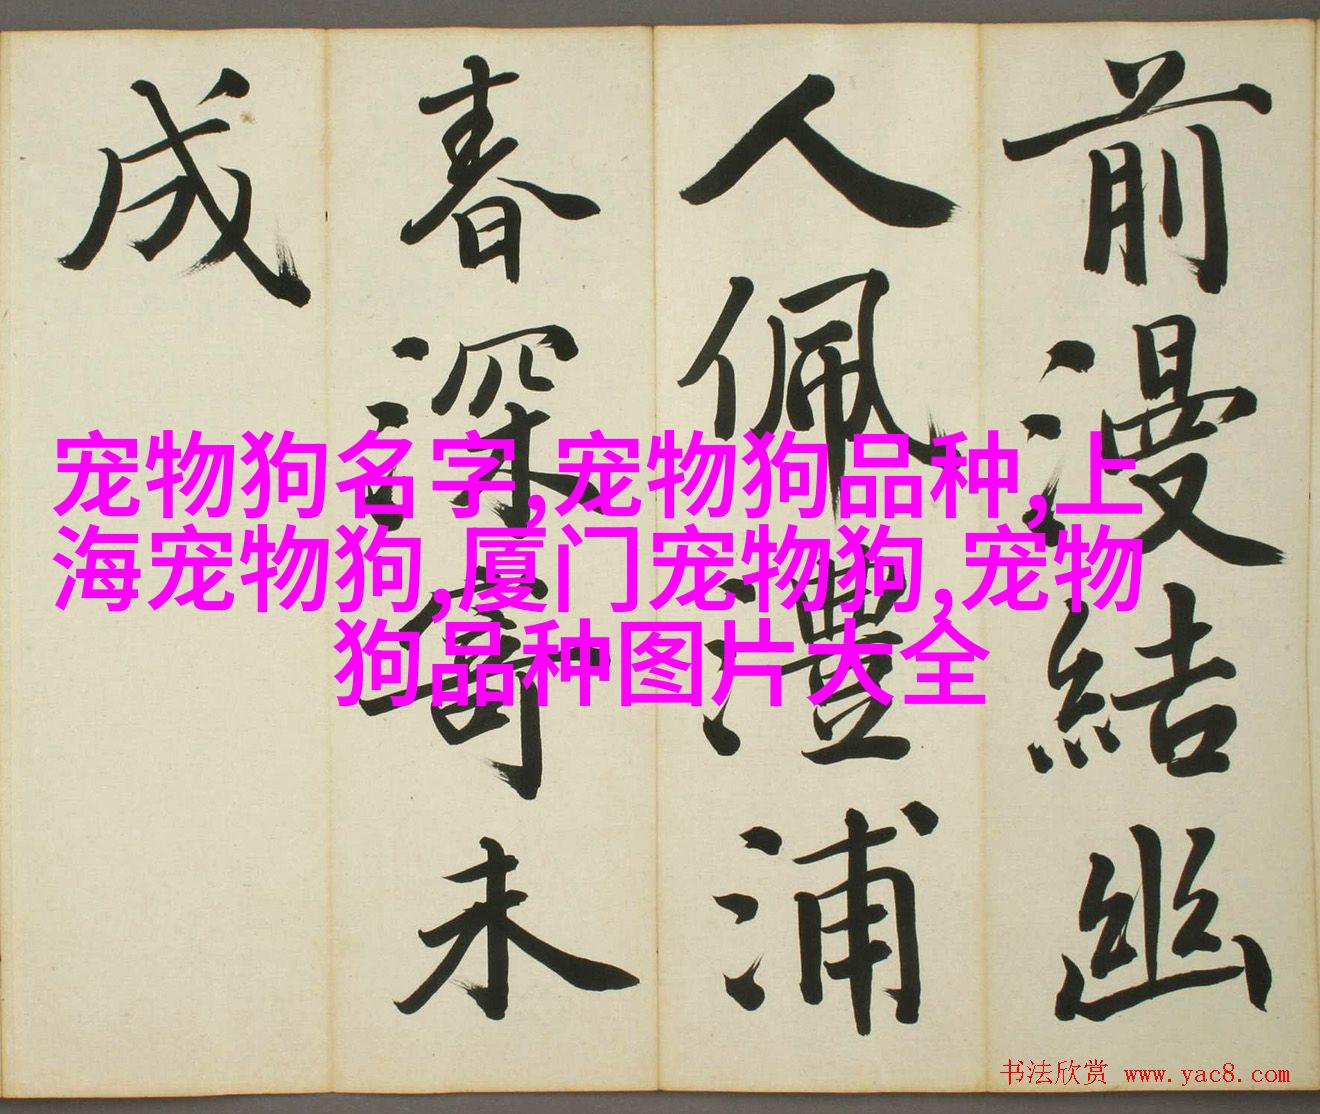 前漫結幽
人佩澧浦
春深寄未
成
宠物狗名字,宠物狗品种,上
海宠物狗,厦门宠物狗,宠物
狗品种图片大全
书法欣赏 www.yac8.com